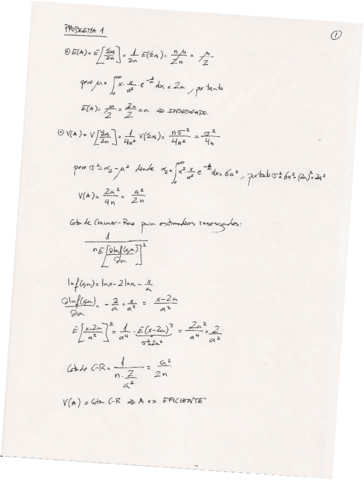 PROBLEMA 1
1
a) E(A) = E[Σxi/2n] = 1/2n E(Σxi) = nμ/2n = μ/2
pero μ = ∫₀^∞ x · x/a² e^(-x/a) dx = 2a, por tanto
E(A) = μ/2 = 2a/2 = a ⇒ INSESGADO
V(A) = V[Σxi/2n] = 1/4n² V(Σxi) = nσ²/4n² = σ²/4n
pero σ² = α₂ - μ² donde α₂ = ∫₀^∞ x² x/a² e^(-x/a) dx = 6a², por tanto σ² = 6a² - (2a)² = 2a²
V(A) = 2a²/4n = a²/2n
Cota de Cramer-Rao para estimadores insesgados:
1 / nE[∂lnf(x;a)/∂a]²
lnf(x;a) = lnx - 2lna - x/a
∂lnf(x;a)/∂a = -2/a + x/a² = x-2a/a²
E[x-2a/a²]² = 1/a⁴ · E(x-2a)² = 2a²/a⁴ = 2/a²
σ² = 2a²
Cota de C-R = 1 / n · 2/a² = a²/2n
V(A) = Cota C-R ⇒ A es EFICIENTE